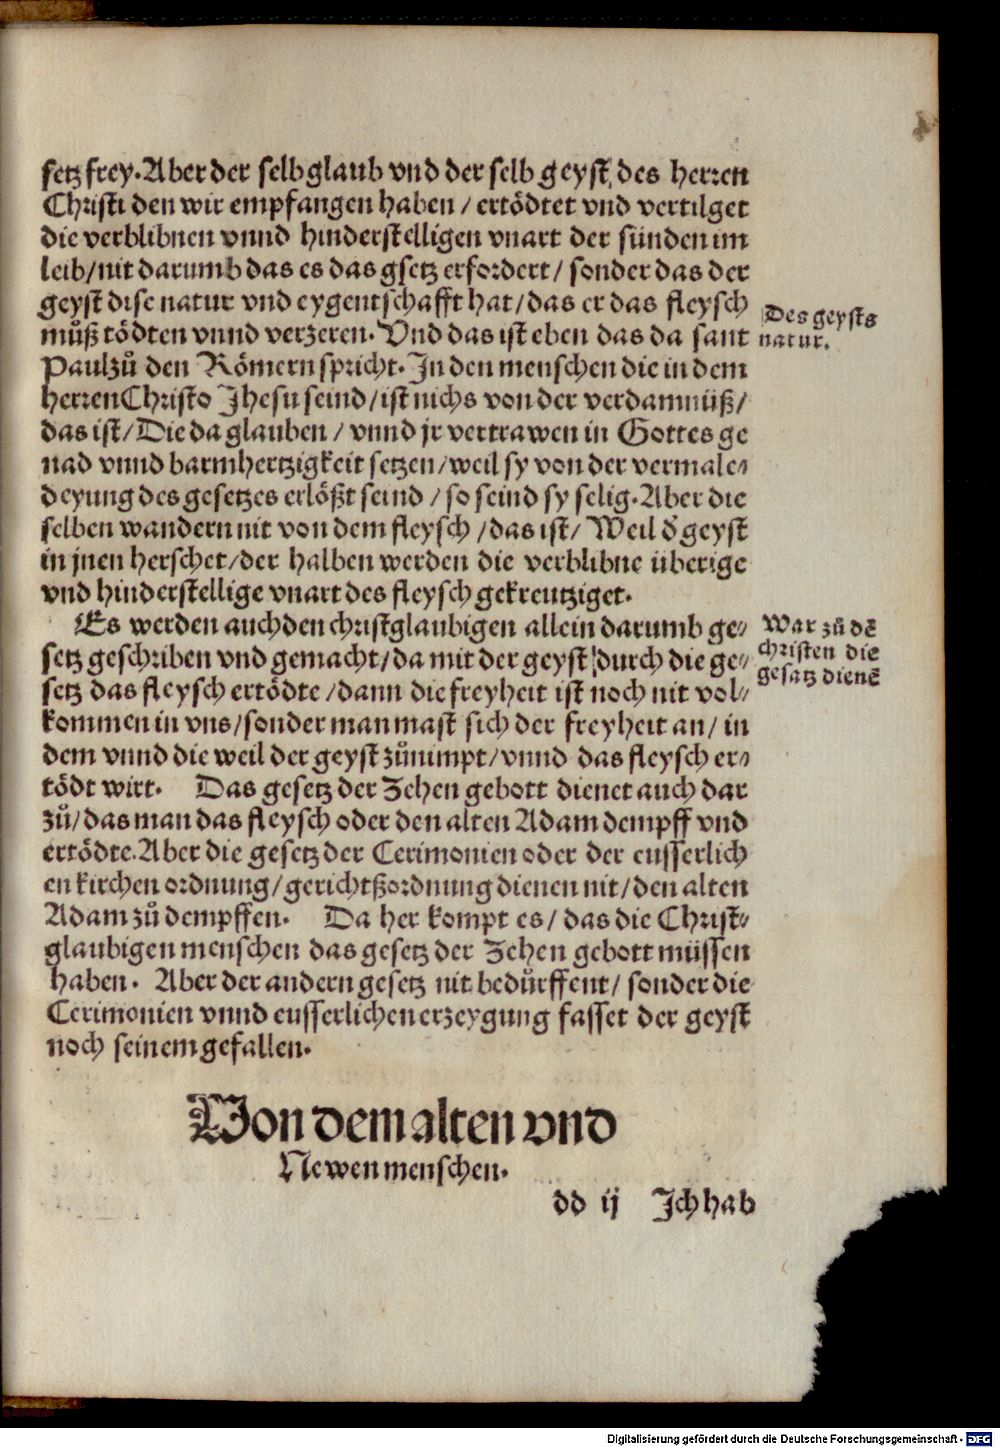 setz frey. Aber der selb glaub vnd der selb geyst, des herren
Christi den wir empfangen haben / ertödtet vnd vertilget
die verblibnen vnnd hinderstelligen vnart der sünden im
leib/nit darumb das es das gsetz erfordert / sonder das der
geyst dise natur vnd eygentschafft hat/das er das fleysch
můß tödten vnnd verzeren. Vnd das ist eben das da sant
Paul zů den Römern spricht. In den menschen die in dem
herren Christo Jhesu seind/ist nichs von der verdamnüß/
das ist/Die da glauben / vnnd jr vertrawen in Gottes ge
nad vnnd barmhertzigkeit setzen/weil sy von der vermale⸗
deyung des gesetzes erlößt seind / so seind sy selig. Aber die
selben wandern nit von dem fleysch /das ist/ Weil d̕ geyst
in jnen herschet/der halben werden die verblibne überige
vnd hinderstellige vnart des fleysch gekreutziget.
Es werden auch den christglaubigen allein darumb ge⸗
setz geschriben vnd gemacht/da mit der geyst durch die ge⸗
setz das fleysch ertödte/dann die freyheit ist noch nit vol⸗
kommen in vns/sonder man mast sich der freyheit an/ in
dem vnnd die weil der geyst zůnimpt/vnnd das fleysch er⸗
tödt wirt. Das gesetz der Zehen gebott dienet auch dar
zů/das man das fleysch oder den alten Adam dempff vnd
ertödte. Aber die gesetz der Cerimonien oder der eusserlich
en kirchen ordnung/gerichtßordnung dienen nit/den alten
Adam zů dempffen. Da her kompt es/ das die Christ⸗
glaubigen menschen das gesetz der Zehen gebott müssen
haben. Aber der andern gesetz nit bedürffent/ sonder die
Cerimonien vnnd eusserlichen erzeygung fasset der geyst
noch seinem gefallen.
Des geysts
natur.
War zů dē
christen die
gesatz dienē
Von dem alten vnd
Newen menschen.
dd ij Ich hab
Digitalisierung gefördert durch die Deutsche Forschungsgemeinschaft - DFG